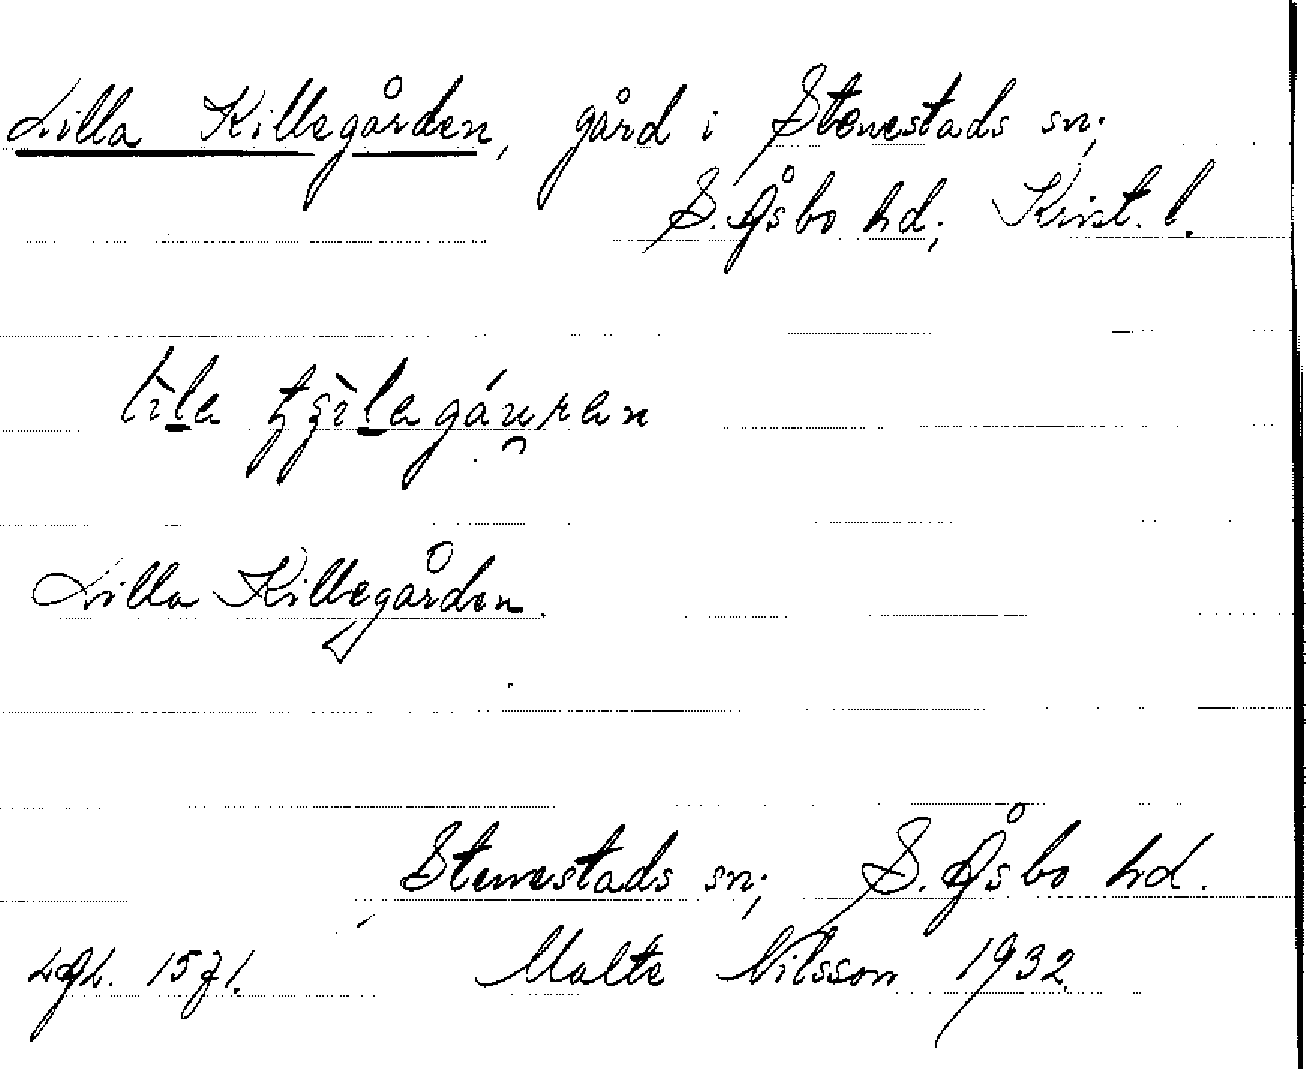 Lilla Killegården, gård i Stenestads sn;
S. Åsbo hd; Krist. l.
lìla tʂìlagáu̯ran
Lilla Killegården.
Stenestads sn; S. Åsbo hd.
Malte Nilsson 1932.